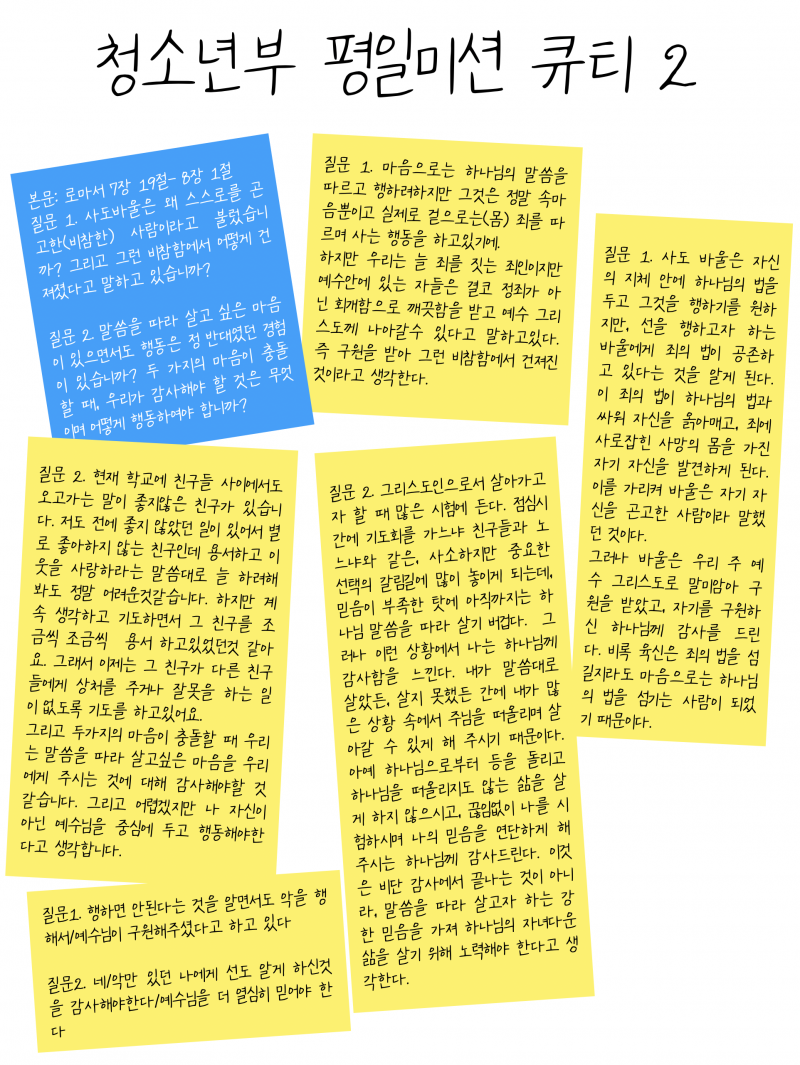 청소년부 평일미션 큐티 2
본문: 로마서 7장 19절- 8장 1절
질문 1. 사도바울은 왜 스스로를 곤
고한(비참한) 사람이라고 불렀습니
까? 그리고 그런 비참함에서 어떻게 건
져졌다고 말하고 있습니까?
질문 2. 말씀을 따라 살고 싶은 마음
이 있으면서도 행동은 정 반대였던 경험
이 있습니까? 두 가지의 마음이 충돌
할 때, 우리가 감사해야 할 것은 무엇
이며 어떻게 행동하여야 합니까?
질문 1. 마음으로는 하나님의 말씀을
따르고 행하려하지만 그것은 정말 속마
음뿐이고 실제로 겉으로는(몸) 죄를 따
르며 사는 행동을 하고있기에.
하지만 우리는 늘 죄를 짓는 죄인이지만
예수안에 있는 자들은 결코 정죄가 아
닌 회개함으로 깨끗함을 받고 예수 그리
스도께 나아갈수 있다고 말하고있다.
즉 구원을 받아 그런 비참함에서 건져진
것이라고 생각한다.
질문 1. 사도 바울은 자신
의 지체 안에 하나님의 법을
두고 그것을 행하기를 원하
지만, 선을 행하고자 하는
바울에게 죄의 법이 공존하
고 있다는 것을 알게 된다.
이 죄의 법이 하나님의 법과
싸워 자신을 옭아매고, 죄에
사로잡힌 사망의 몸을 가진
자기 자신을 발견하게 된다.
이를 가리켜 바울은 자기 자
신을 곤고한 사람이라 말했
던 것이다.
그러나 바울은 우리 주 예
수 그리스도로 말미암아 구
원을 받았고, 자기를 구원하
신 하나님께 감사를 드린
다. 비록 육신은 죄의 법을 섬
길지라도 마음으로는 하나님
의 법을 섬기는 사람이 되었
기 때문이다.
질문 2. 현재 학교에 친구들 사이에서도
오고가는 말이 좋지않은 친구가 있습니
다. 저도 전에 좋지 않았던 일이 있어서 별
로 좋아하지 않는 친구인데 용서하고 이
웃을 사랑하라는 말씀대로 늘 하려해
봐도 정말 어려운것같습니다. 하지만 계
속 생각하고 기도하면서 그 친구를 조
금씩 조금씩 용서 하고있었던것 같아
요. 그래서 이제는 그 친구가 다른 친구
들에게 상처를 주거나 잘못을 하는 일
이 없도록 기도를 하고있어요.
그리고 두가지의 마음이 충돌할 때 우리
는 말씀을 따라 살고싶은 마음을 우리
에게 주시는 것에 대해 감사해야할 것
같습니다. 그리고 어렵겠지만 나 자신이
아닌 예수님을 중심에 두고 행동해야한
다고 생각합니다.
질문 2. 그리스도인으로서 살아가고
자 할 때 많은 시험에 든다. 점심시
간에 기도회를 가느냐 친구들과 노
느냐와 같은, 사소하지만 중요한
선택의 갈림길에 많이 놓이게 되는데,
믿음이 부족한 탓에 아직까지는 하
나님 말씀을 따라 살기 버겁다. 그
러나 이런 상황에서 나는 하나님께
감사함을 느낀다. 내가 말씀대로
살았든, 살지 못했든 간에 내가 많
은 상황 속에서 주님을 떠올리며 살
아갈 수 있게 해 주시기 때문이다.
아예 하나님으로부터 등을 돌리고
하나님을 떠올리지도 않는 삶을 살
게 하지 않으시고, 끊임없이 나를 시
험하시며 나의 믿음을 연단하게 해
주시는 하나님께 감사드린다. 이것
은 비단 감사에서 끝나는 것이 아니
라, 말씀을 따라 살고자 하는 강
한 믿음을 가져 하나님의 자녀다운
삶을 살기 위해 노력해야 한다고 생
각한다.
질문1. 행하면 안된다는 것을 알면서도 악을 행
해서/예수님이 구원해주셨다고 하고 있다
질문2. 네/악만 있던 나에게 선도 알게 하신것
을 감사해야한다/예수님을 더 열심히 믿어야 한
다